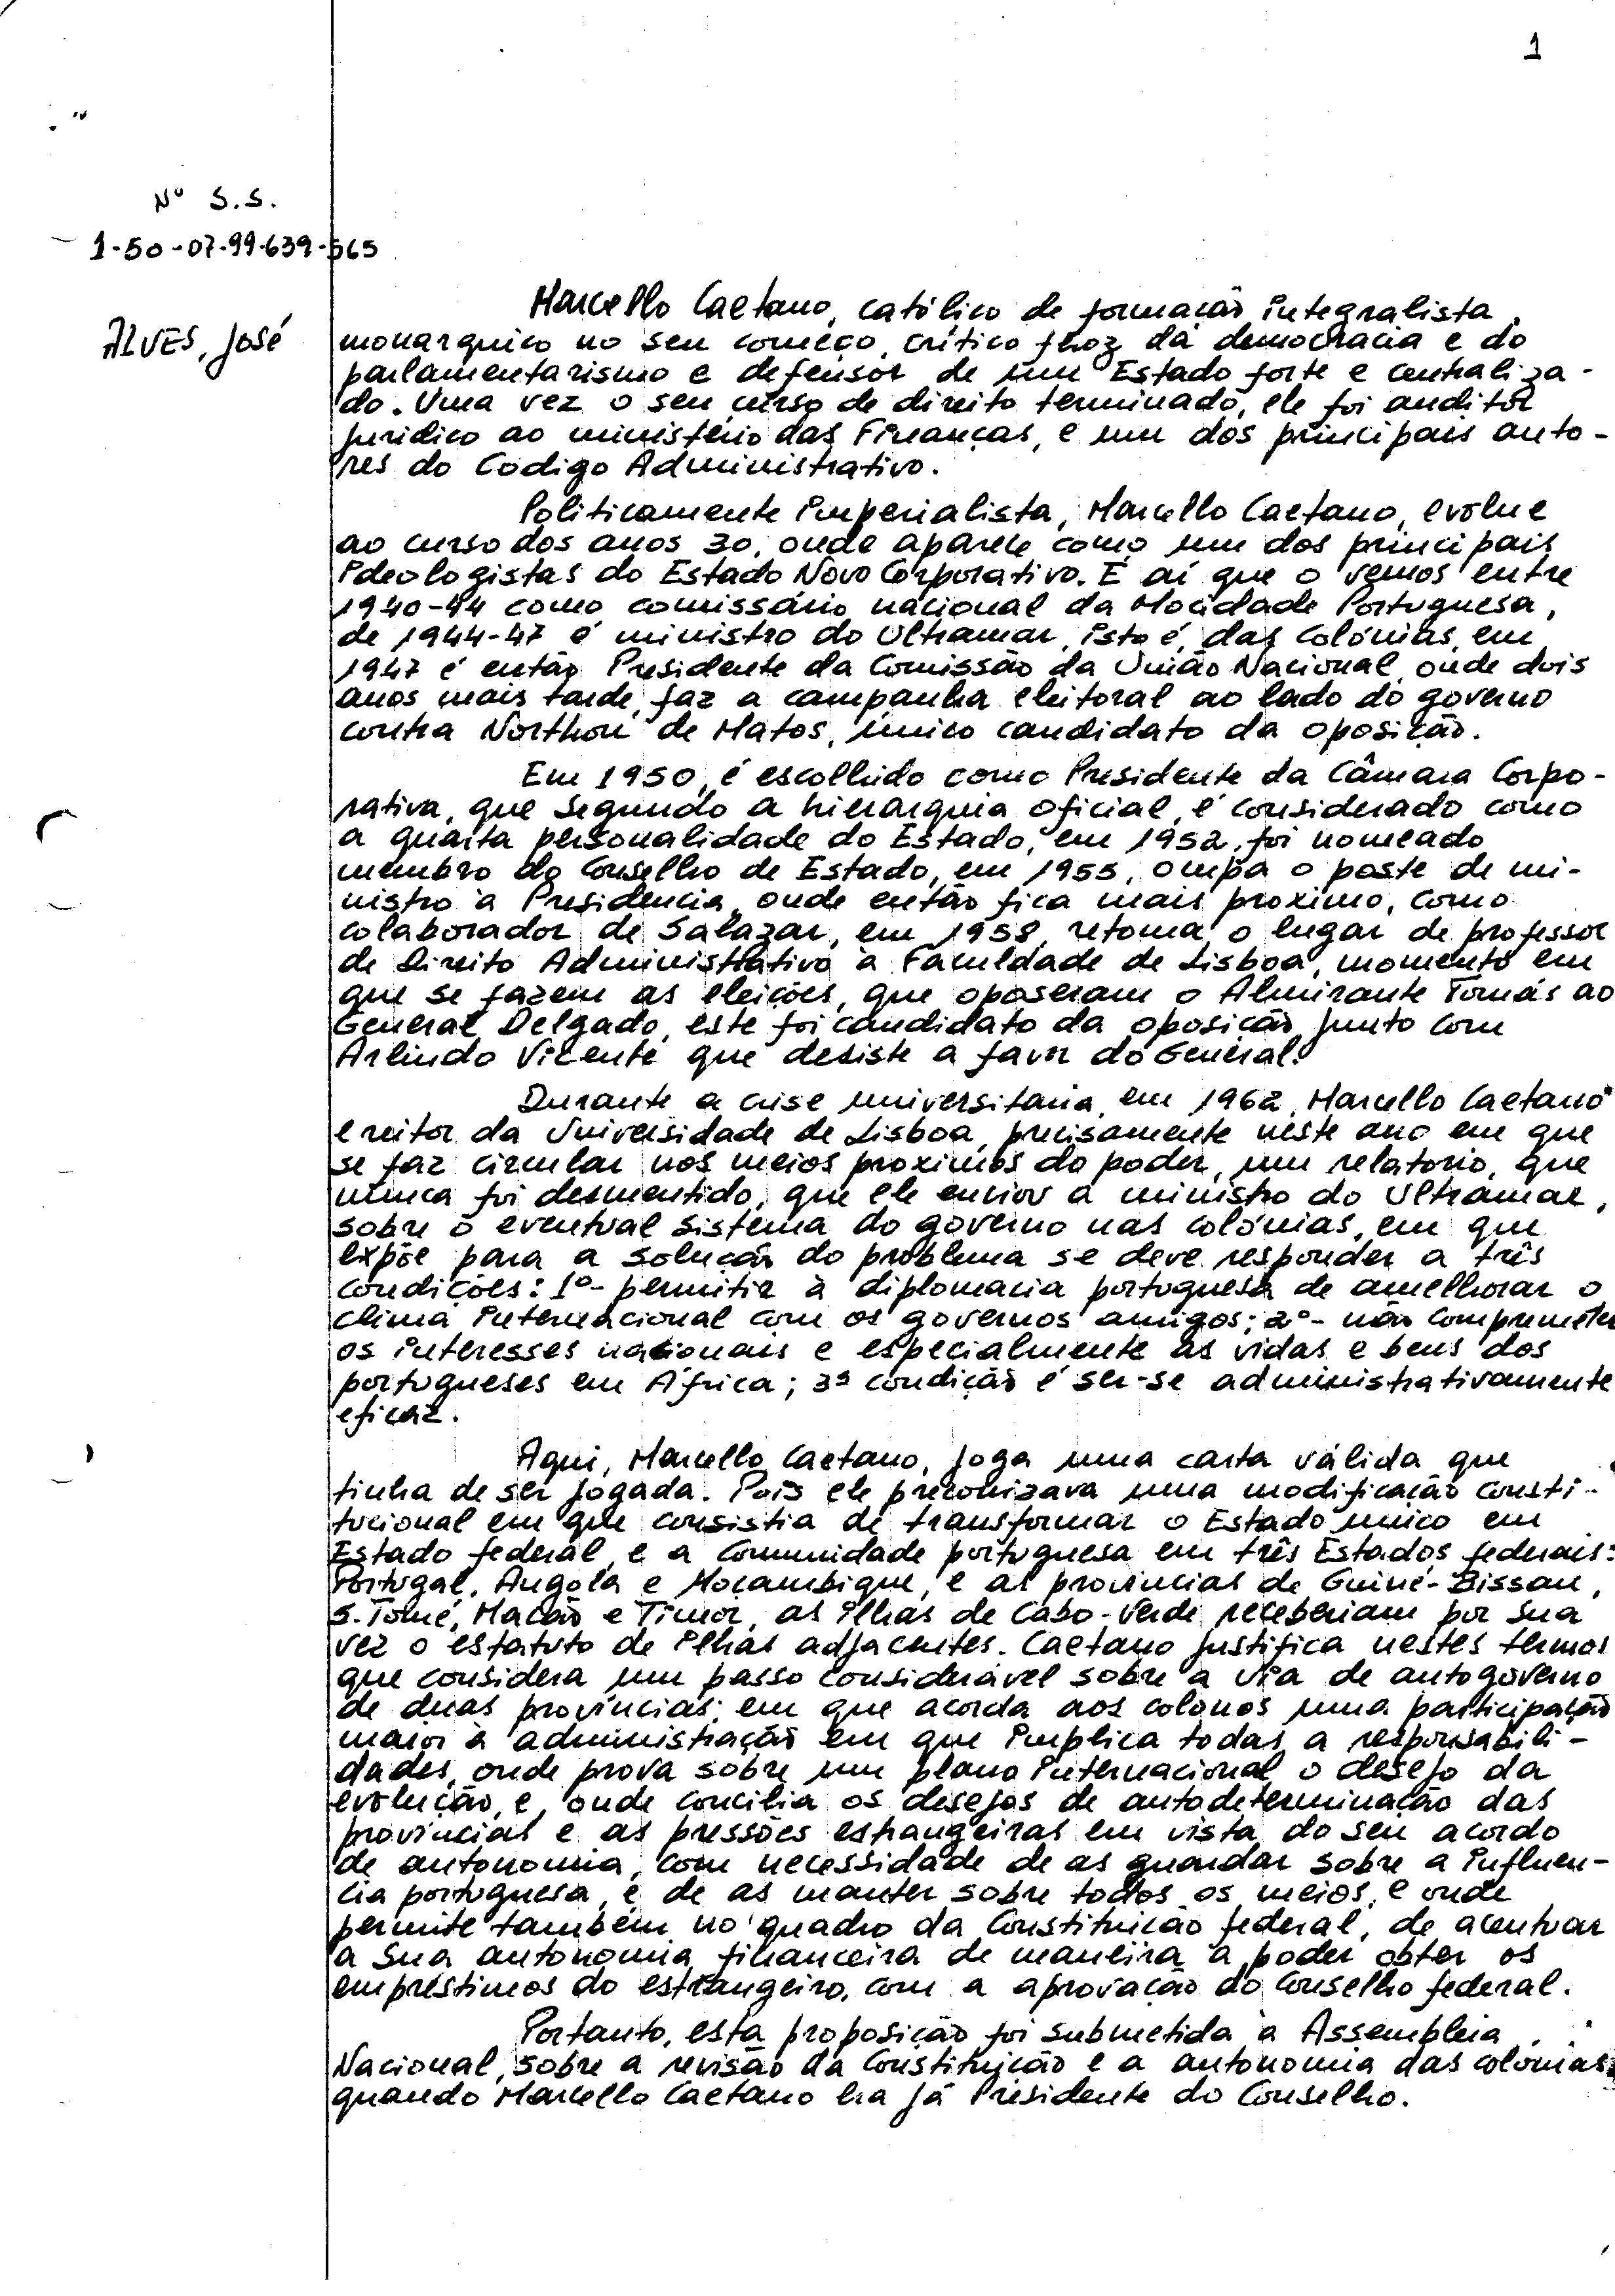 1
Nº S.S.
1-50-07-99-639-565
ALVES, José
Marcello Caetano, católico de formação integralista,
monarquico no seu começo, crítico feroz da democracia e do
parlamentarismo e defensor de um Estado forte e centraliza-
do. Uma vez o seu curso de direito terminado, ele foi auditor
juridico ao ministério das Finanças, e um dos principais auto-
res do Codigo Administrativo.
Politicamente imperialista, Marcello Caetano, evolue
ao curso dos anos 30, onde aparece como um dos principais
ideologistas do Estado Novo Corporativo. E aí que o vemos entre
1940-44 como comissário nacional da Mocidade Portuguesa,
de 1944-47 é ministro do Ultramar, isto é, das Colónias, em
1947 é então Presidente da Comissão da União Nacional, onde dois
anos mais tarde, faz a campanha eleitoral ao lado do governo
contra Northon de Matos, único candidato da oposição.
Em 1950, é escolhido como Presidente da Câmara Corpo-
rativa, que segundo a hierarquia oficial, é considerado como
a quarta personalidade do Estado, em 1952, foi nomeado
membro do Conselho de Estado, em 1955, ocupa o poste de mi-
nistro à Presidencia, onde então fica mais proximo, como
colaborador de Salazar, em 1958, retoma o lugar de professor
de Direito Administrativo à Faculdade de Lisboa, momento em
que se fazem as eleições, que oposeram o Almirante Tomás ao
General Delgado, este foi candidato da oposição junto com
Arlindo Vicente que desiste a favor do General.
Durante a crise universitaria, em 1962, Marcello Caetano
é reitor da Universidade de Lisboa, precisamente neste ano em que
se faz circular nos meios proximos do poder, um relatorio, que
nunca foi desmentido, que ele enviou a ministro do Ultramar,
sobre o eventual sistema do governo nas colónias, em que
expõe para a solução do problema se deve responder a três
condições: 1º- permitir à diplomacia portuguesa de amelhorar o
clima internacional com os governos amigos; 2º- não comprometer
os interesses nacionais e especialmente as vidas e bens dos
portugueses em Africa; 3ª condição é ser-se administrativamente
eficaz.
Aqui, Marcello Caetano, joga uma carta válida que
tinha de ser jogada. Pois ele preconizava uma modificação consti-
tucional em que consistia de transformar o Estado único em
Estado federal, e a Comunidade portuguesa em três Estados federais:
Portugal, Angola e Moçambique, e as provincias de Guiné-Bissau,
S. Tomé, Macão e Timor, as ilhas de Cabo-Verde receberiam por sua
vez o estatuto de ilhas adjacentes. Caetano justifica nestes termos
que considera um passo considerável sobre a via de autogoverno
de duas províncias; em que acorda aos colonos uma participação
maior à administração em que implica todas a responsabili-
dades, onde prova sobre um plano internacional o desejo da
evolução, e, onde concilia os desejos de autodeterminação das
provincias e as pressões estrangeiras em vista do seu acordo
de autonomia, com necessidade de as guardar sobre a influen-
cia portuguesa, e de as manter sobre todos os meios, e onde
permite também no quadro da Constituição federal, de acentuar
a sua autonomia financeira de maneira a poder obter os
empréstimos do estrangeiro, com a aprovação do Conselho federal.
Portanto, esta proposição foi submetida à Assembleia
Nacional, sobre a revisão da Constituição e a autonomia das colónias
quando Marcello Caetano era já Presidente do Conselho.